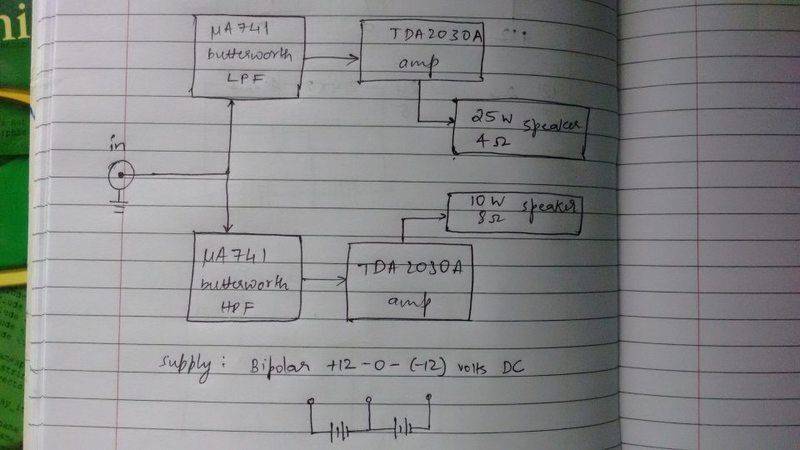 μA741
butterworth
LPF
TDA2030A
amp
...
25W speaker
4Ω
in
10W speaker
8Ω
μA741
butterworth
HPF
TDA2030A
amp
Supply: Bipolar +12-0-(-12) volts DC